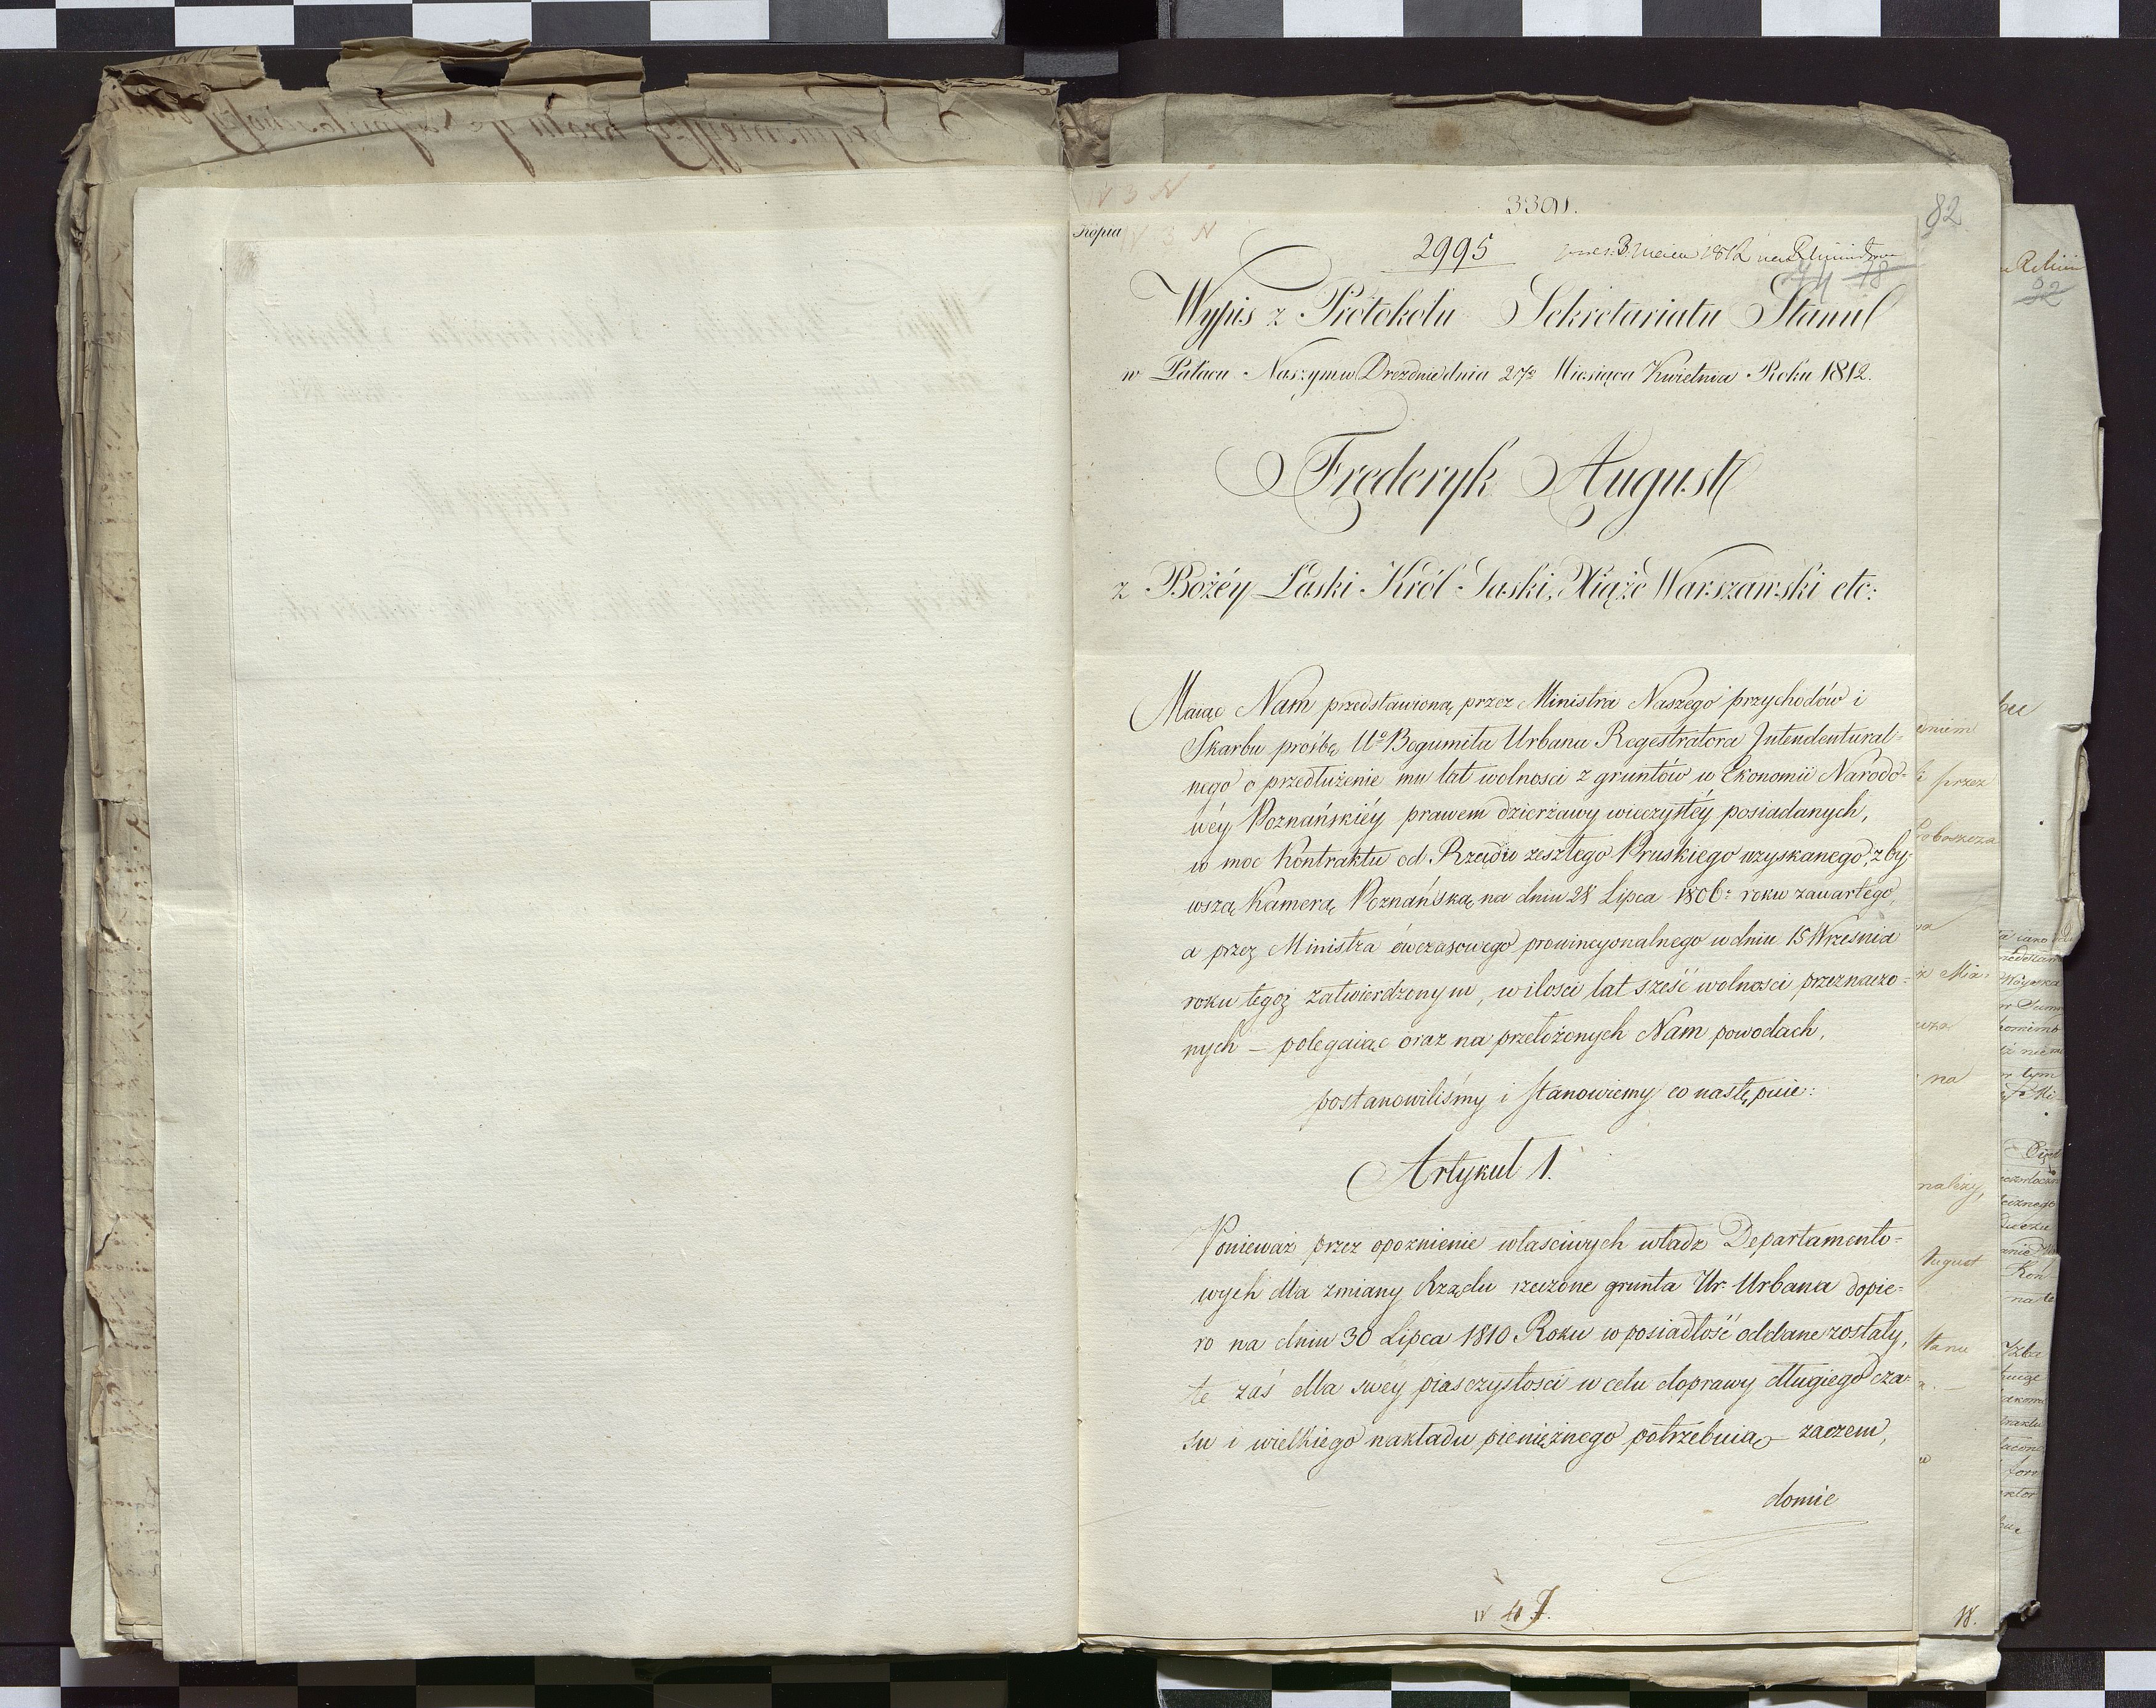 3391.
82
Kopia
2995
74 78
Wypis z Protokołu Sekretariatu Stanu
w Pałacu Naszym w Dreznie dnia 27º Miesiąca Kwietnia Roku 1812.
Frederyk August
z Bożéy Łaski Król Saski, Xiąże Warszawski etc:
Maiąc Nam przedstawioną przez Ministra Naszego przychodów i
Skarbu prośbę Uº Bogumiła Urbana Regestratora Intendentural-
nego o przedłużenie mu lat wolnosci z gruntów w Ekonomii Narodo-
wéy Poznańskiéy prawem dzierżawy wieczystéy posiadanych,
w moc Kontraktu od Rządu zeszłego Pruskiego uzyskanego, z by-
wszą Kamerą Poznańską na dniu 28 Lipca 1806: roku zawartego,
a przez Ministra ówczasowego prowincyonalnego w dniu 15 Wrzesnia
roku tegoż zatwierdzonym, w ilosci lat sześć wolnosci przeznaczo-
nych – polegaiąc oraz na przełożonych Nam powodach,
postanowiliśmy i stanowiemy co następuie:
Artykuł 1.
Ponieważ przez opoznienie własciwych władz Departamento-
wych dla zmiany Rządu rzeczone grunta Ur: Urbana dopie-
ro na dniu 30 Lipca 1810 Roku w posiadłość oddane zostały,
te zaś dla swéy piasczystosci w celu doprawy długiego cza-
su i wielkiego nakładu pieniężnego potrzebuią – zaczem,
domie
18.